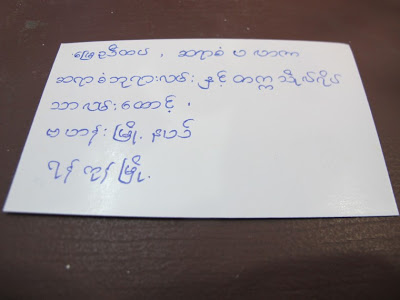 မြေညီထပ် ၊ ဆရာစံ ပလာဇာ
ဆရာစံဘုရားလမ်း နှင့် တက္ကသိုလ်ရိပ်
သာလမ်းထောင့် ၊
ဗဟန်းမြို့နယ်
ရန်ကုန်မြို့